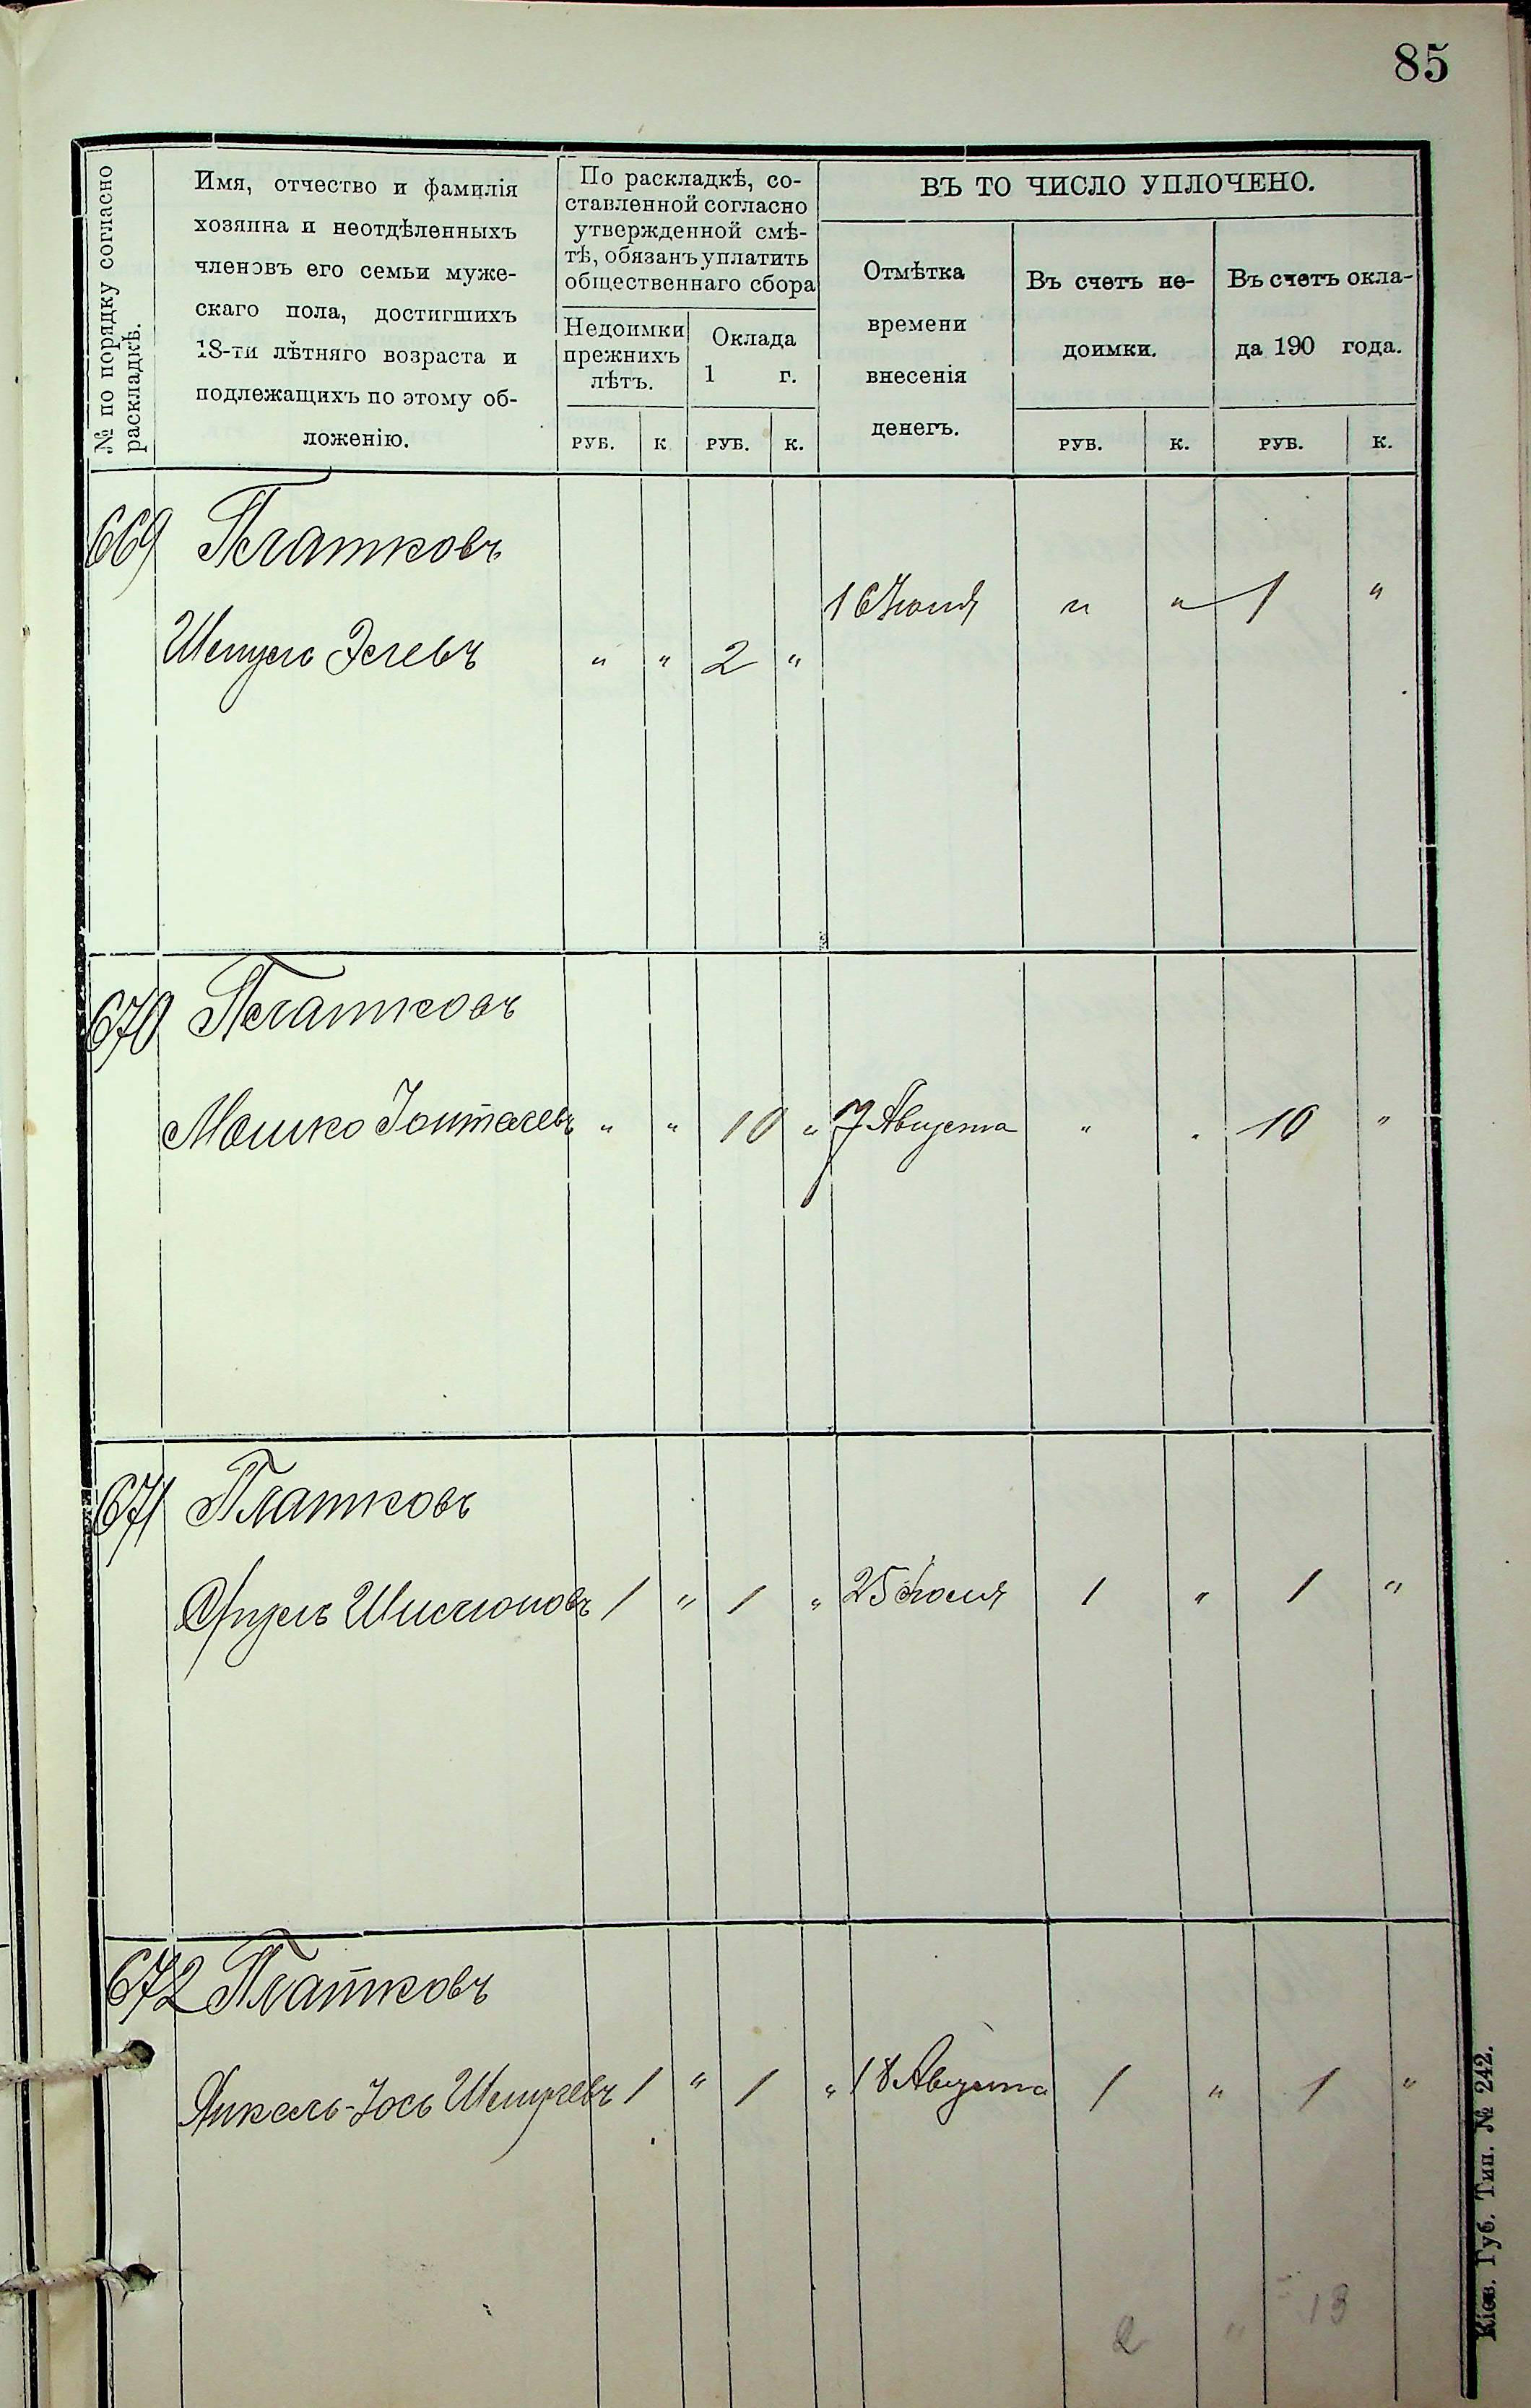 85
№ по порядку согласно
раскладкѣ.
Имя, отчество и фамилія
хозяина и неотдѣленныхъ
членовъ его семьи муже-
скаго пола, достигшихъ
18-ти лѣтняго возраста и
подлежащихъ по этому об-
ложенію.
По раскладкѣ, со-
ставленной согласно
утвержденной смѣ-
тѣ, обязанъ уплатить
общественнаго сбора
Недоимки
прежнихъ
лѣтъ.
Оклада
1 г.
РУБ. К РУБ. К.
ВЪ ТО ЧИСЛО УПЛОЧЕНО.
Отмѣтка
времени
внесенія
денегъ.
Въ счетъ не-
доимки.
Въ счетъ окла-
да 190 года.
РУБ. К. РУБ. К.
669 Платковъ
16 Іюня " " 1 "
Шепсель " " 2 "
670 Платковъ
Мошко " " 10 " 7 Августа " " 10 "
671 Платковъ
1 " 1 " 25 Іюля 1 " 1 "
672 Платковъ
Янкель-Іось 1 " 1 " 18 Августа 1 " 1 "
2 " 13
Кіев. Губ. Тип. № 242.